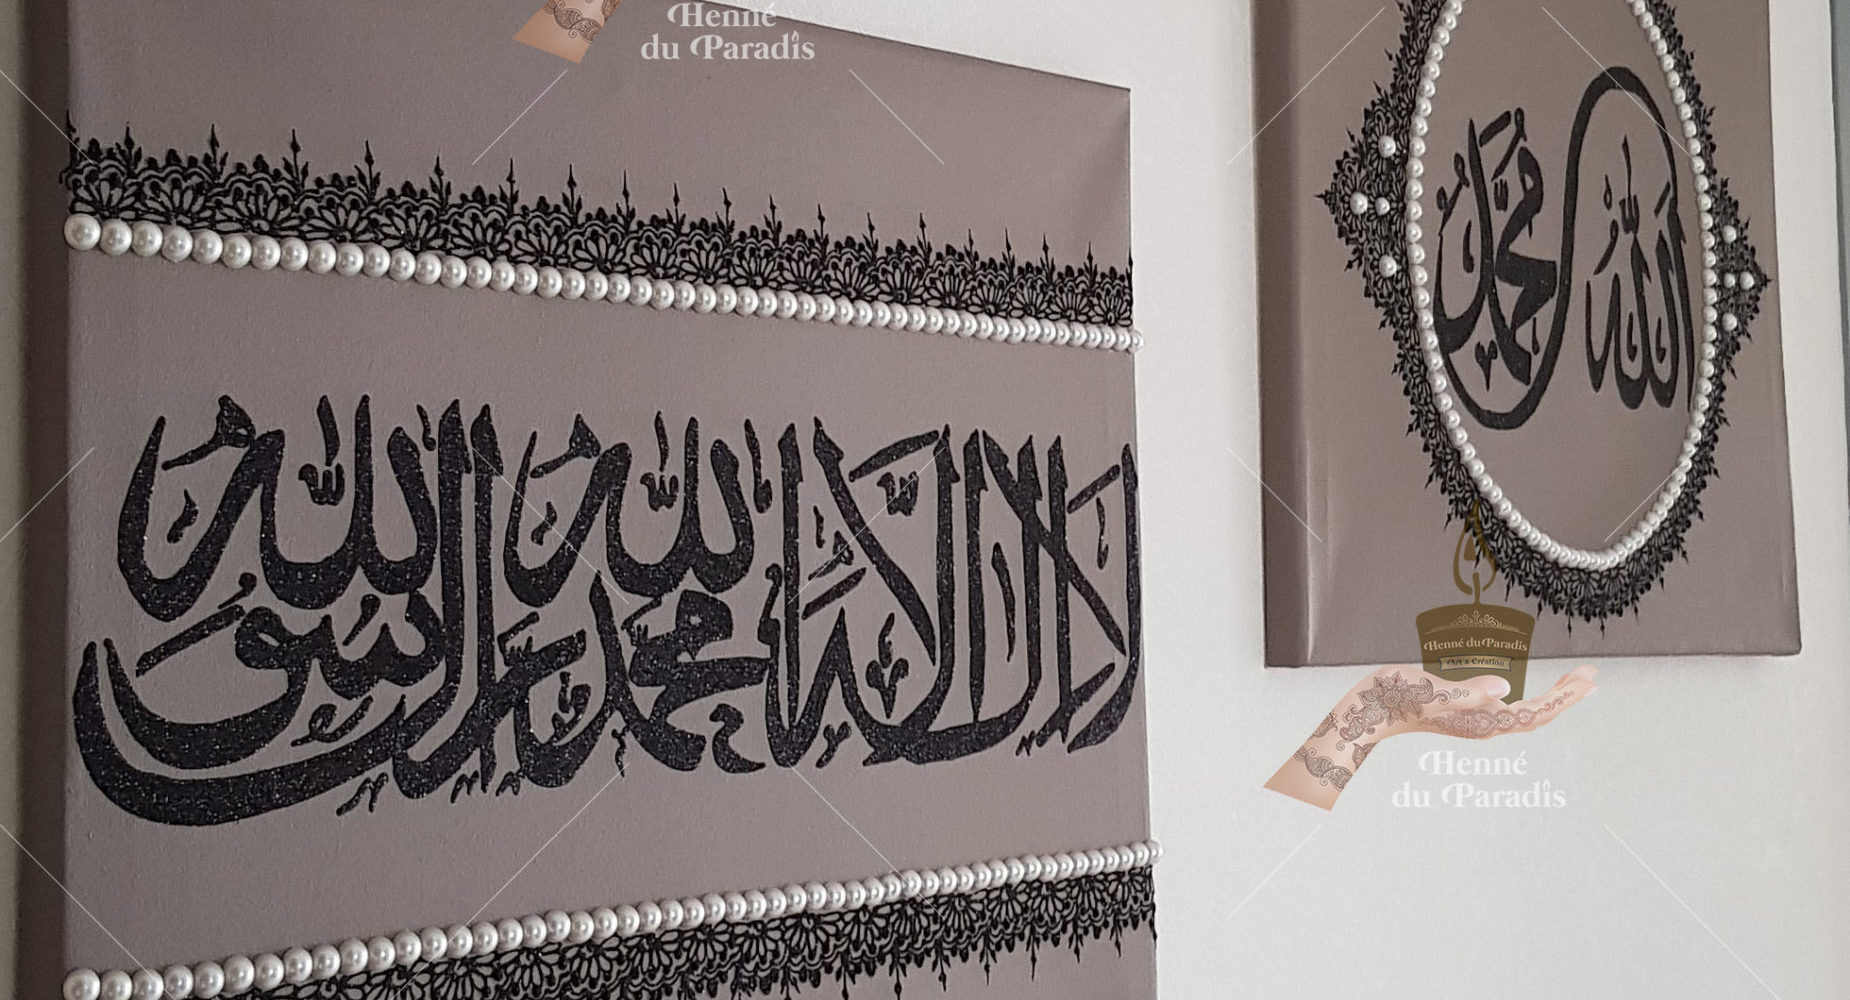 Henné
du Paradis
لا إله إلا الله محمد رسول الله
الله محمد
Henné du Paradis
Art & Création
Henné
du Paradis